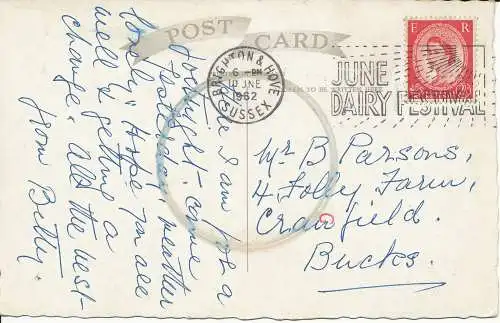 POST CARD
E R
BRIGHTON & HOVE
6 - PM
10 JNE
1962
SUSSEX
JUNE
DAIRY FESTIVAL
TO BE WRITTEN HERE
Here I am for a
fortnight. came
yesterday, weather
lovely. Hope you are
well & getting a
change. all the best
from Betty.
Mr B Parsons,
4 Folly Farm,
Crawfield.
Bucks.